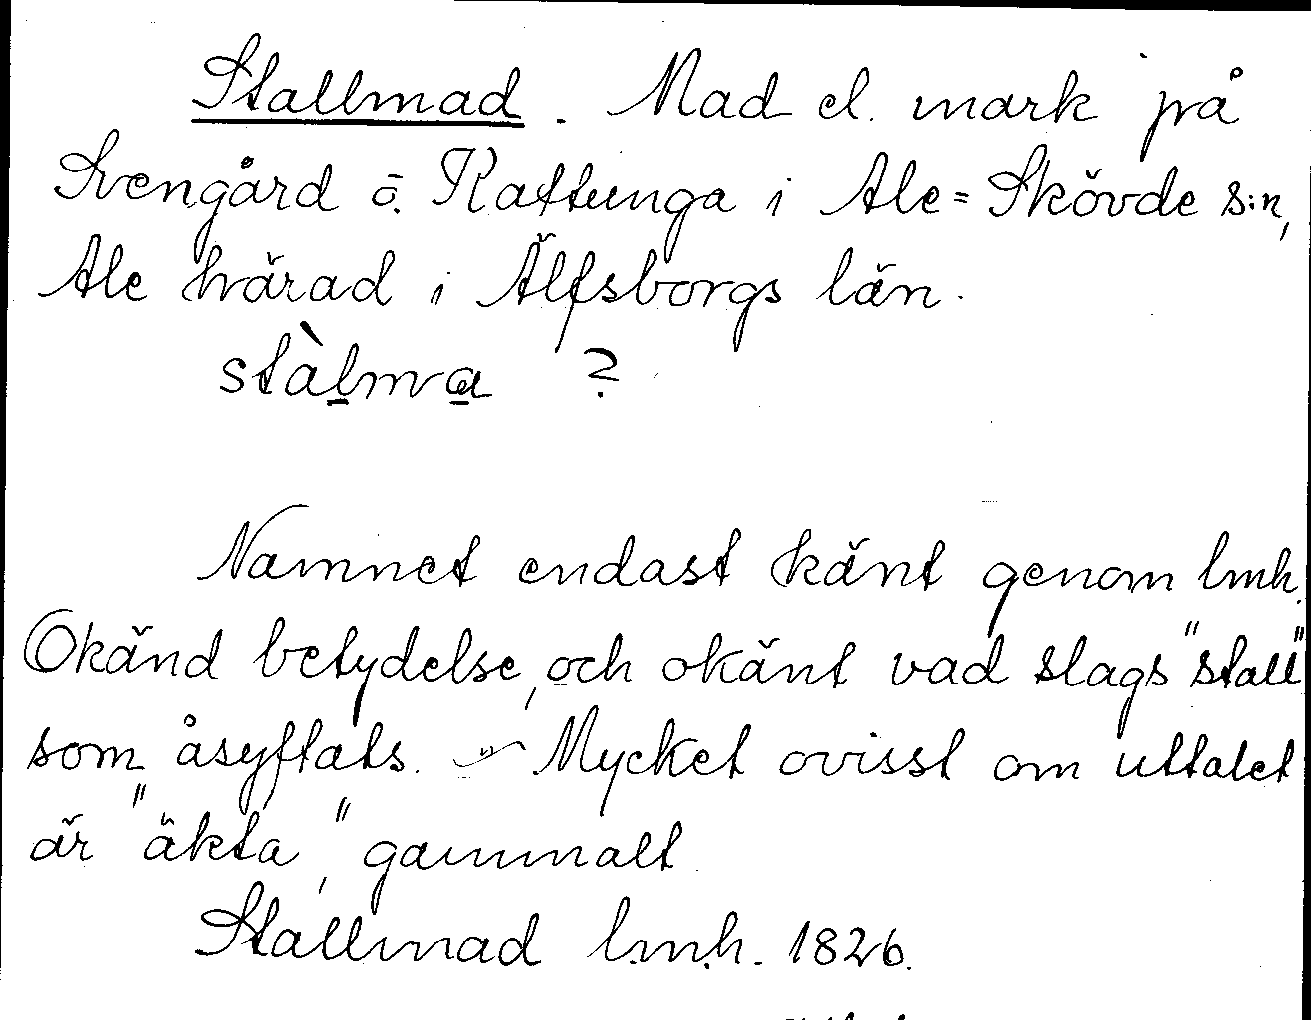 Stallmad. Mad el. mark på
Svengård ö. Kattunga i Ale-Skövde s:n,
Ale härad i Älfsborgs län.
stàlma ?
Namnet endast känt genom lmh.
Okänd betydelse, och okänt vad slags "stall"
som åsyftats. – Mycket ovisst om uttalet
är "äkta," gammalt.
Stallmad l.m.h. 1826.